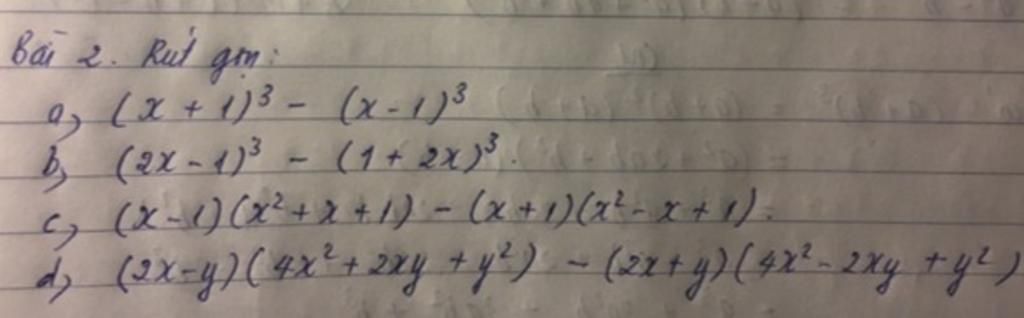 Bài 2. Rút gọn:
a, (x + 1)³ - (x - 1)³
b, (2x - 1)³ - (1 + 2x)³.
c, (x - 1)(x² + x + 1) - (x + 1)(x² - x + 1).
d, (2x - y)(4x² + 2xy + y²) - (2x + y)(4x² - 2xy + y²)